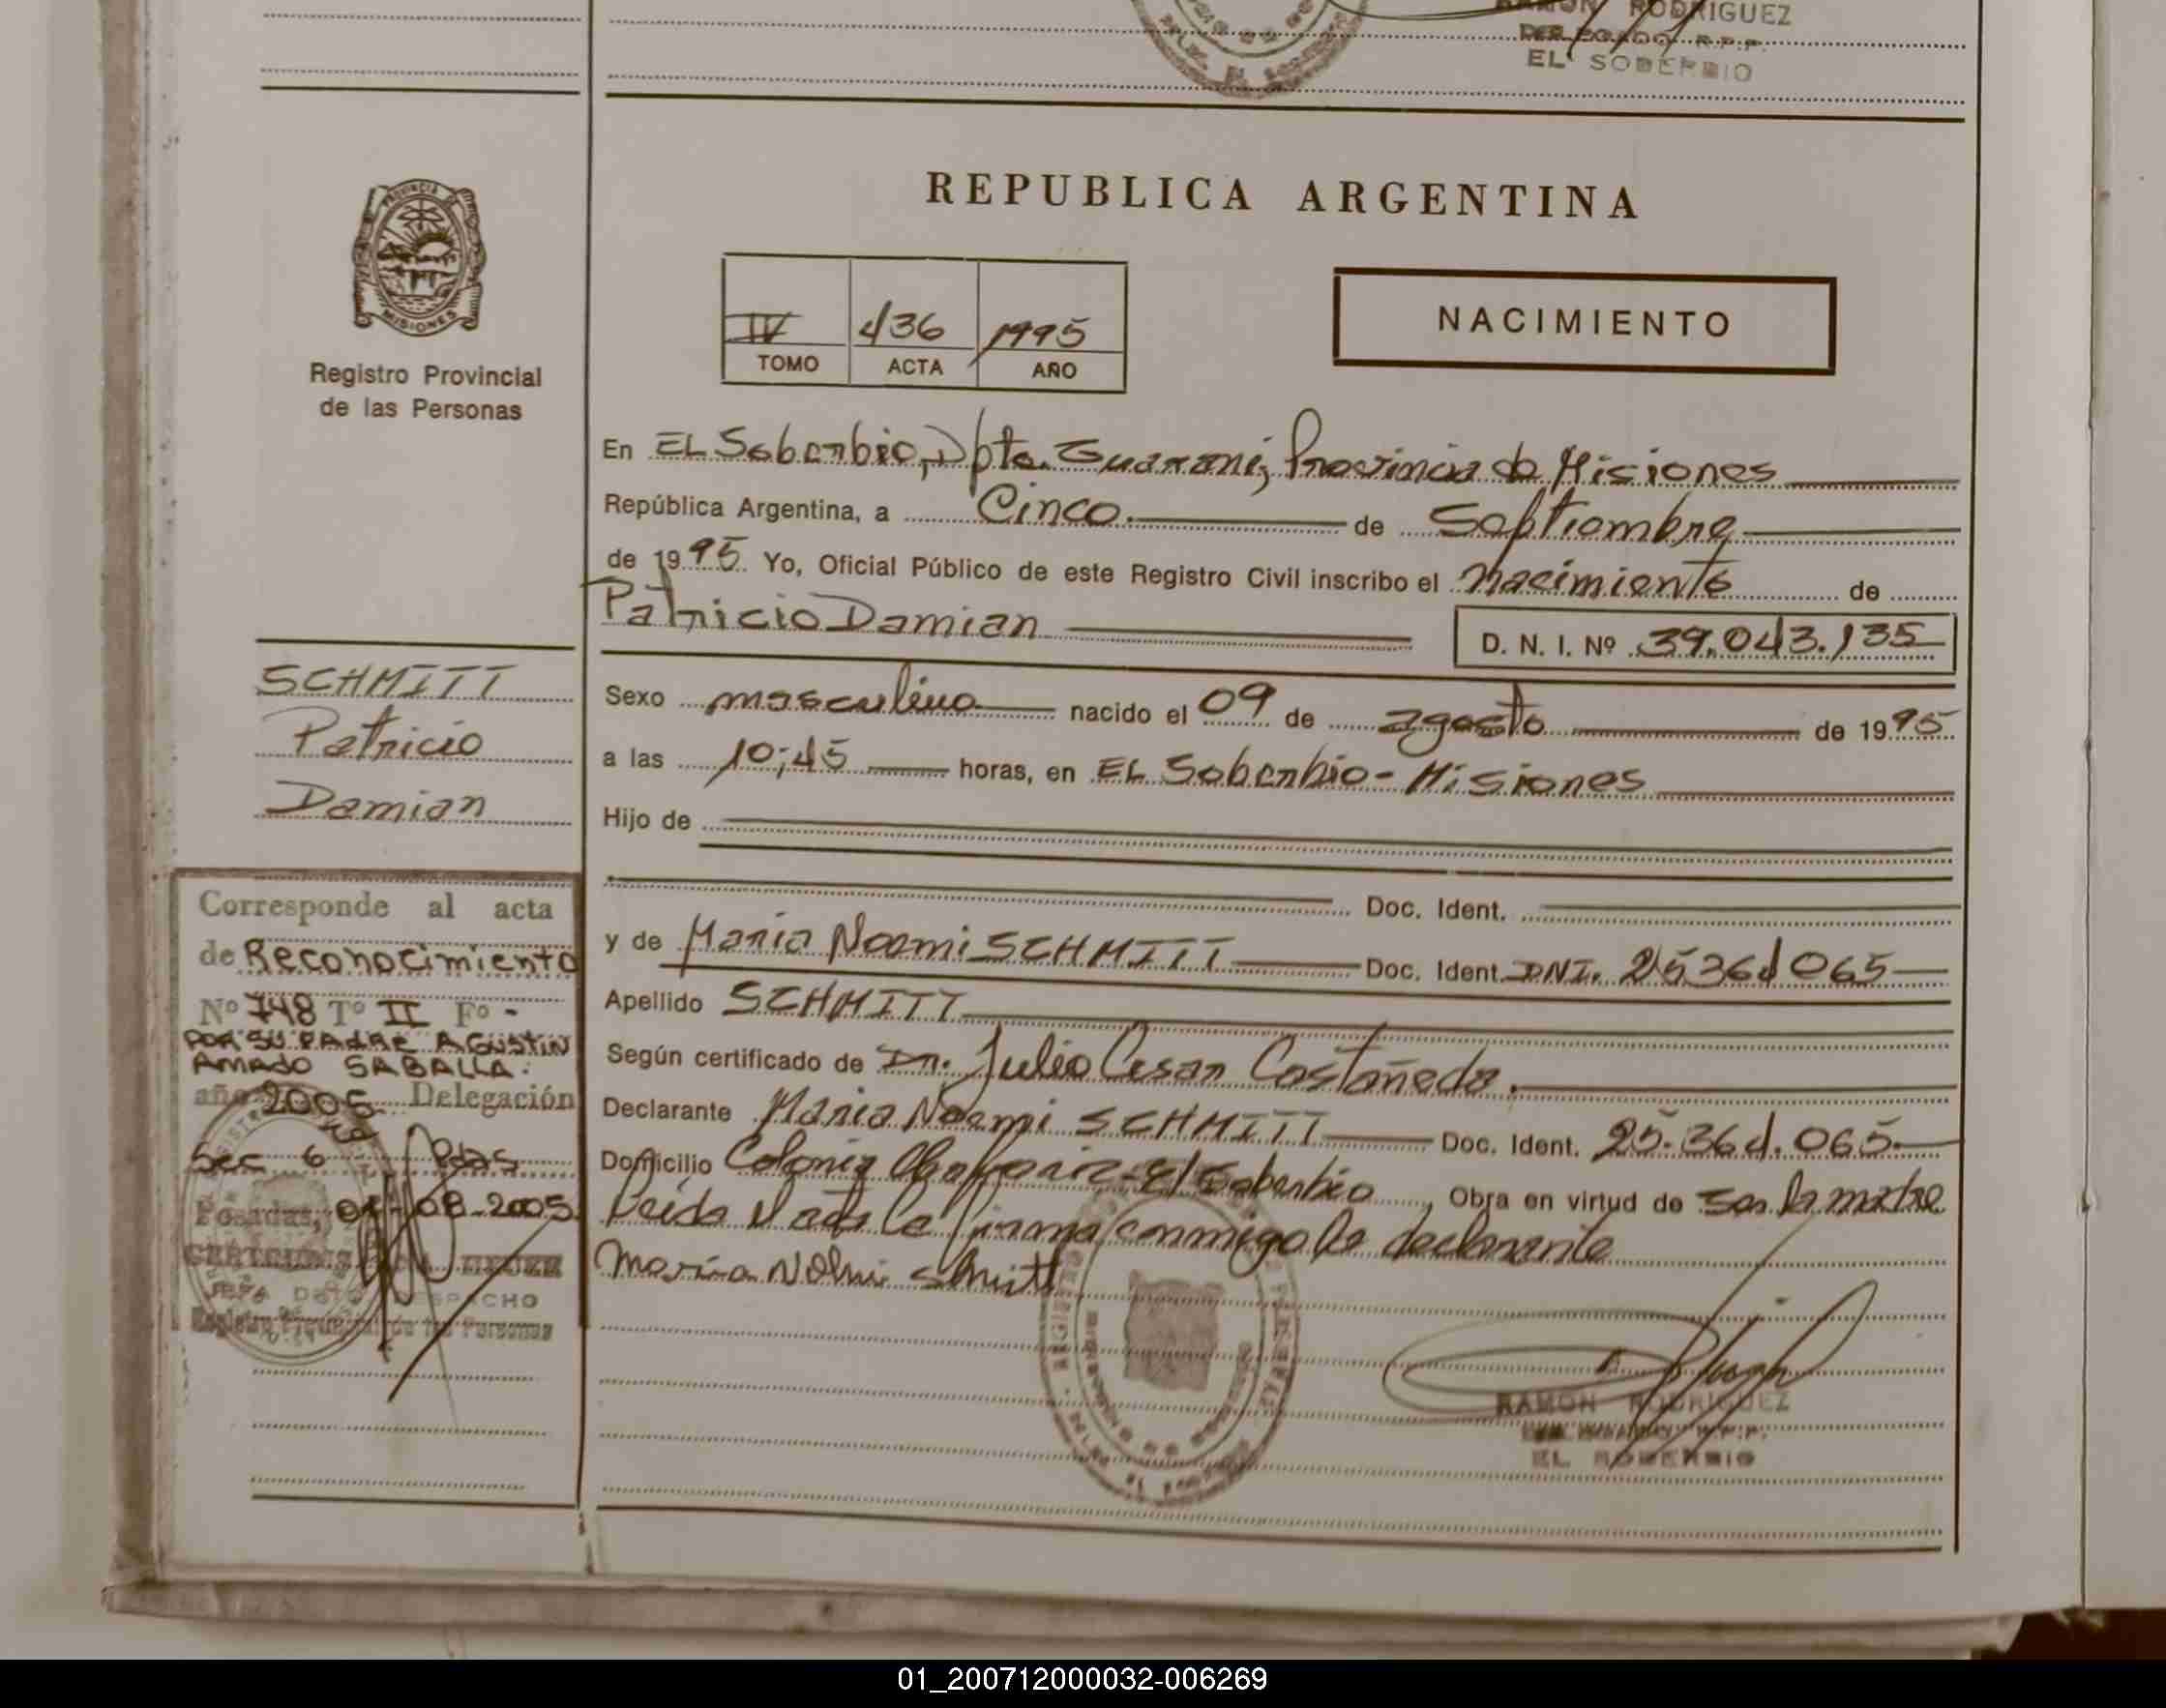 RAMON RODRIGUEZ
EL SOBERBIO
REPUBLICA ARGENTINA
PROVINCIA DE
MISIONES
Registro Provincial
de las Personas
IV 436 1995
TOMO ACTA AÑO
NACIMIENTO
En EL Soberbio, Dpto. Guarani, Provincia de Misiones
República Argentina, a Cinco de Septiembre
de 1995 Yo, Oficial Público de este Registro Civil inscribo el nacimiento de
Patricio Damian
D. N. I. Nº 39.043.135
SCHMITT
Patricio
Damian
Sexo masculino nacido el 09 de agosto de 1995
a las 10;45 horas, en EL Soberbio - Misiones
Hijo de
Doc. Ident.
y de Maria Noemi SCHMITT Doc. Ident. DNI. 25364065
Apellido SCHMITT
Según certificado de Dr. Julio Cesar Castañeda.
Declarante Maria Noemi SCHMITT Doc. Ident. 25.364.065
Domicilio Colonia El Soberbio, Obra en virtud de ser la madre
Leida el acta la firma conmigo la declarante
Maria Nohemi Schmitt
RAMON RODRIGUEZ
EL SOBERBIO
Corresponde al acta
de Reconocimiento
Nº 748 Tº II Fº -
POR SU PADRE AGUSTIN
AMADO SABALLA.
año 2005 Delegación
Sec 6 Pdas
Posadas, 01-08-2005
JEFA DPTO DESPACHO
Registro Provincial de las Personas
01_200712000032-006269